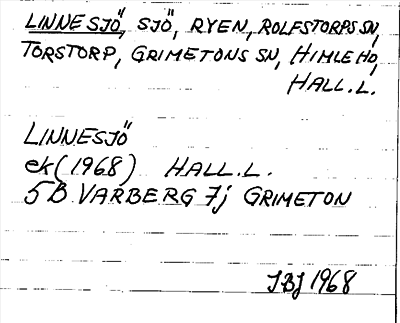 LINNESJÖ, SJÖ, RYEN, ROLFSTORPS SN,
TORSTORP, GRIMETONS SN, HIMLE HD,
HALL.L.
LINNESJÖ
ek (1968) HALL.L.
5B VARBERG 7j GRIMETON
JBJ 1968